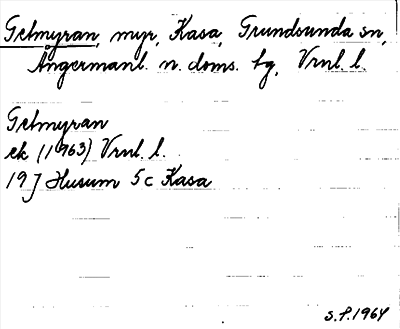 Getmyran, myr, Kasa, Grundsunda sn,
Ångermanl. n. doms. lg, Vrnl. l.
Getmyran
ek (1963) Vrnl. l.
19 J Husum 5 c Kasa
S.F. 1964